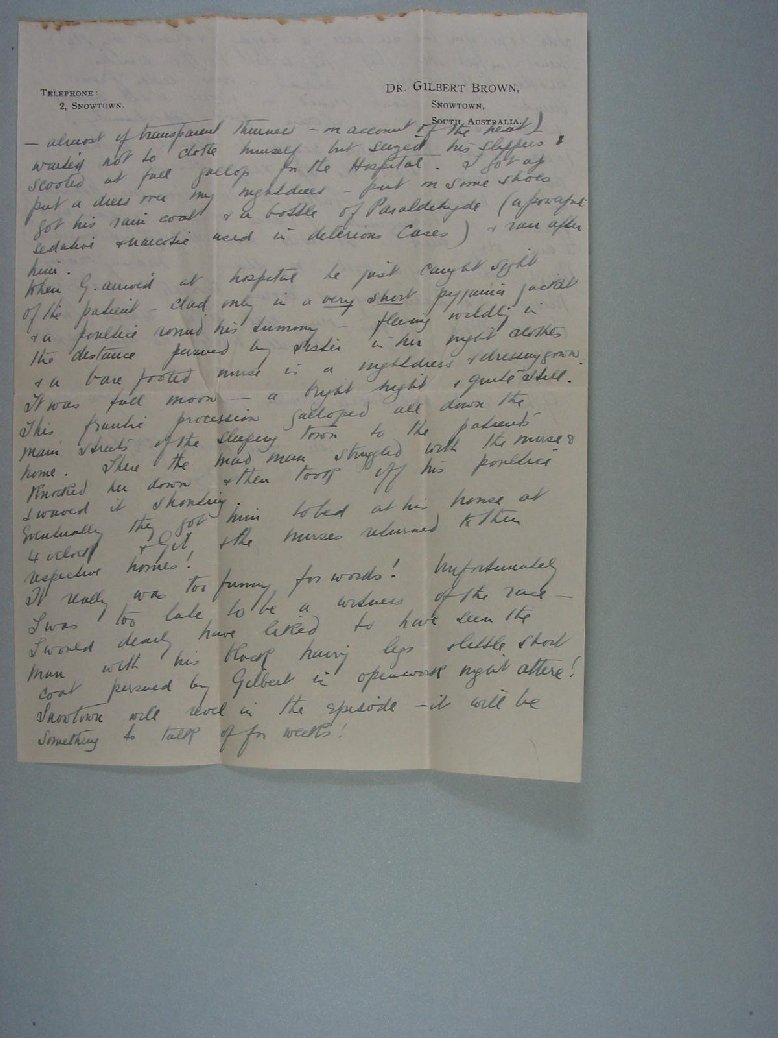 TELEPHONE:
2, SNOWTOWN.
DR. GILBERT BROWN,
SNOWTOWN,
SOUTH AUSTRALIA.
— almost of transparent thinness — on account of the heat)
waited not to clothe himself but seized his slippers &
scooted at full gallop for the Hospital. I got up
put a dress over my nightdress — put on some shoes
got his rain coat & a bottle of Paraldehyde (a powerful
sedative & narcotic used in delerious cases) & ran after
him.
When G. arrived at hospital he just caught sight
of the patient — clad only in a very short pyjama jacket
& a poultice round his tummy — fleeing wildly in
the distance pursued by Sister in her night clothes
& a bare footed nurse in a nightdress & dressing gown.
It was full moon — a bright night & quite still.
This frantic procession galloped all down the
main streets of the sleeping town to the patients'
home. There the mad man struggled with the nurse &
knocked her down & then took off his poultice
& waved it shouting.
Eventually they got him to bed at his house at
4 o'clock & Gil & the nurses returned to their
respective homes!
It really was too funny for words! Unfortunately
I was too late to be a witness of the race —
I would dearly have liked to have seen the
man with his black hairy legs & little short
coat persued by Gilbert in openwork night attire!
Snowtown will revel in the episode — it will be
something to talk of for weeks!